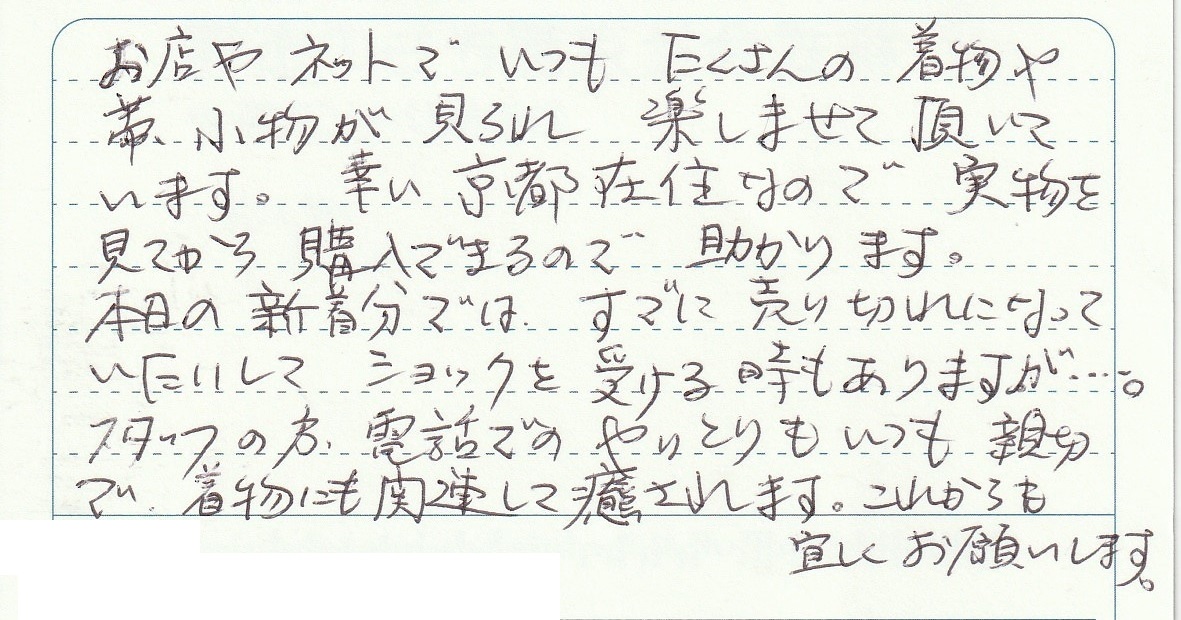 お店や ネットで いつも たくさんの 着物や
帯、小物が 見られ 楽しませて 頂いて
います。 幸い 京都在住なので 実物を
見てから 購入できるので 助かります。
本日の 新着分では、すでに 売り切れになって
いたりして ショックを 受ける時もありますが…。
スタッフの方、電話でのやりとりも いつも 親切
で、着物にも関連して癒されます。これからも
宜しくお願いします。